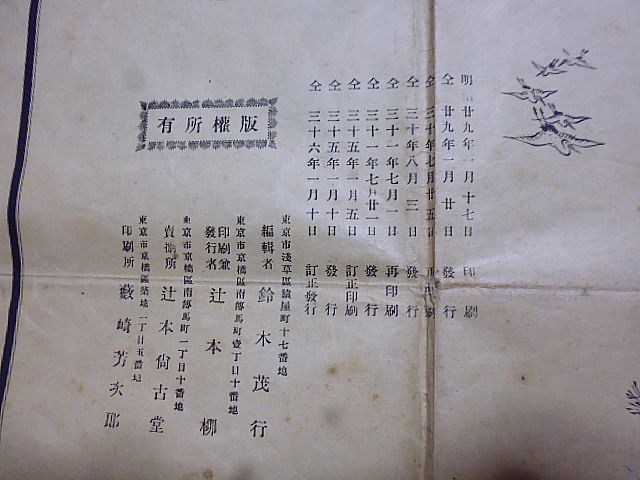 明治廿九年一月十七日 印刷
仝 廿九年一月廿日 發行
仝 三十年七月廿五日 再印刷
仝 三十年八月三日 發行
仝 三十一年七月一日 再印刷
仝 三十一年七月廿一日 發行
仝 三十五年一月五日 訂正印刷
仝 三十五年一月十日 發行
仝 三十六年一月十日 訂正發行
版權所有
東京市淺草區猿屋町十七番地
編輯者 鈴木茂行
東京市京橋區南傳馬町壹丁目十番地
印刷兼發行者 辻本 柳
東京市京橋區南傳馬町一丁目十番地
賣捌所 辻本尙古堂
東京市京橋區築地一丁目五番地
印刷所 藪崎芳次郎